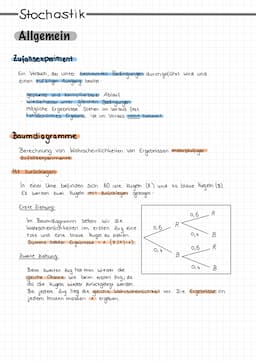 Stochastik
Allgemein
Zufallsexperiment
Ein Versuch, der unter bestimmten Bedingungen durchgeführt wird und
einen zufälligen Ausgang besitzt
geplante und kontrollierte Ablauf
wiederholbar unter gleichen Bedingungen
mögliche Ergebnisse stehen im Voraus fest
ist im Voraus nicht bekannt
Baumdiagramme
Berechnung von Wahrscheinlichkeiten von Ergebnissen mehrstufiger
Zufallsexperimente
Mit Zurücklegen
In einer Urne befinden sich rote Kugeln (R) und blaue Kugeln (B).
Es werden zwei Kugeln mit Zurücklegen gezogen.
Erste Ziehung:
Im Baumdiagramm sehen wir die
Wahrscheinlichkeiten im ersten Zug eine
rote und eine blaue Kugel zu ziehen.
Zweite Ziehung:
Beim zweiten Zug hat man wieder die
gleiche Chance wie beim ersten Zug, da
die Kugeln wieder zurückgelegt werden.
Bei jedem Zug liegt die gleiche Wahrscheinlichkeit vor. Die Ergebnisse an
jedem Knoten müssen 1 ergeben.
0,6 R
0,6 R
0,4 B
0,4 B
0,6 R
0,4 B